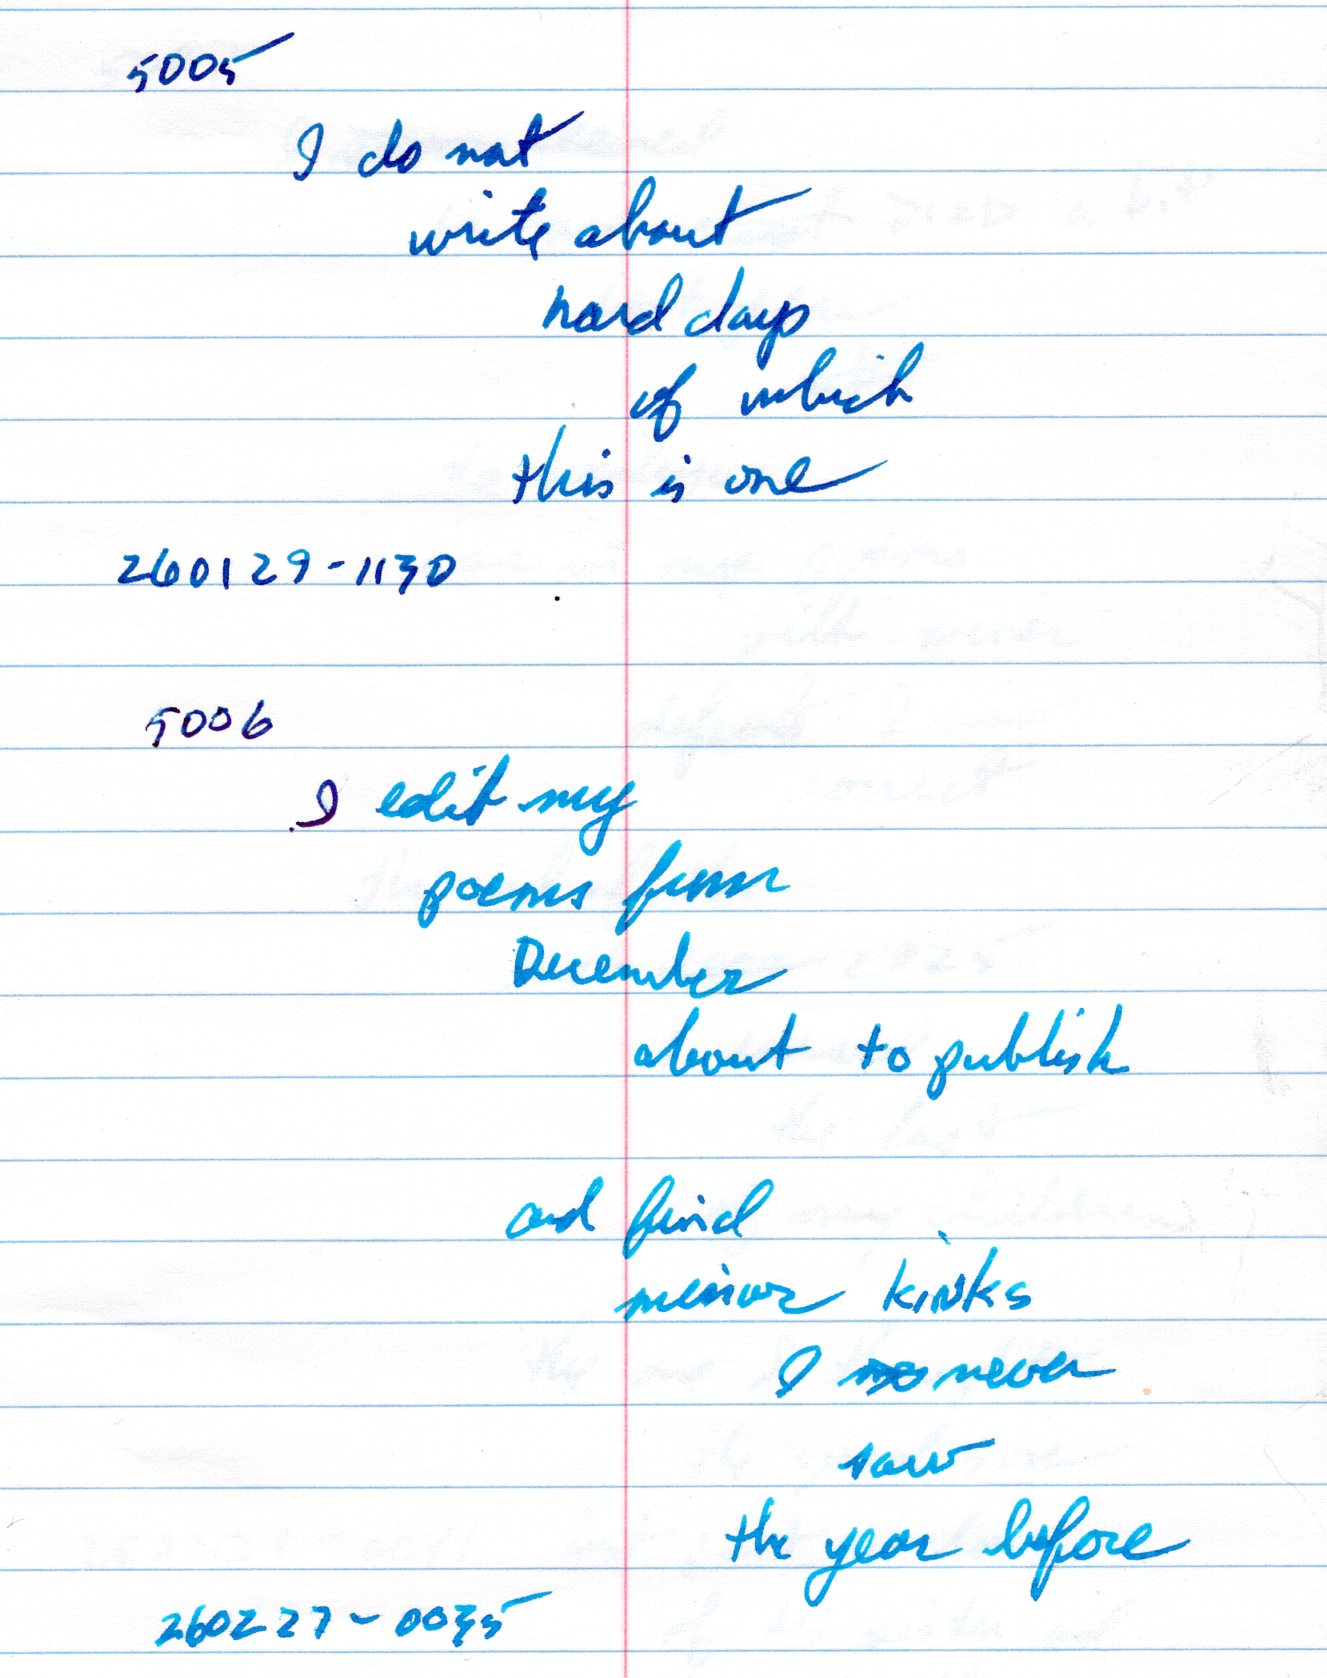 5005
I do not
write about
hard days
of which
this is one
260129-1130
5006
I edit my
poems from
December
about to publish
and find
minor kinks
I never
saw
the year before
260227-0035